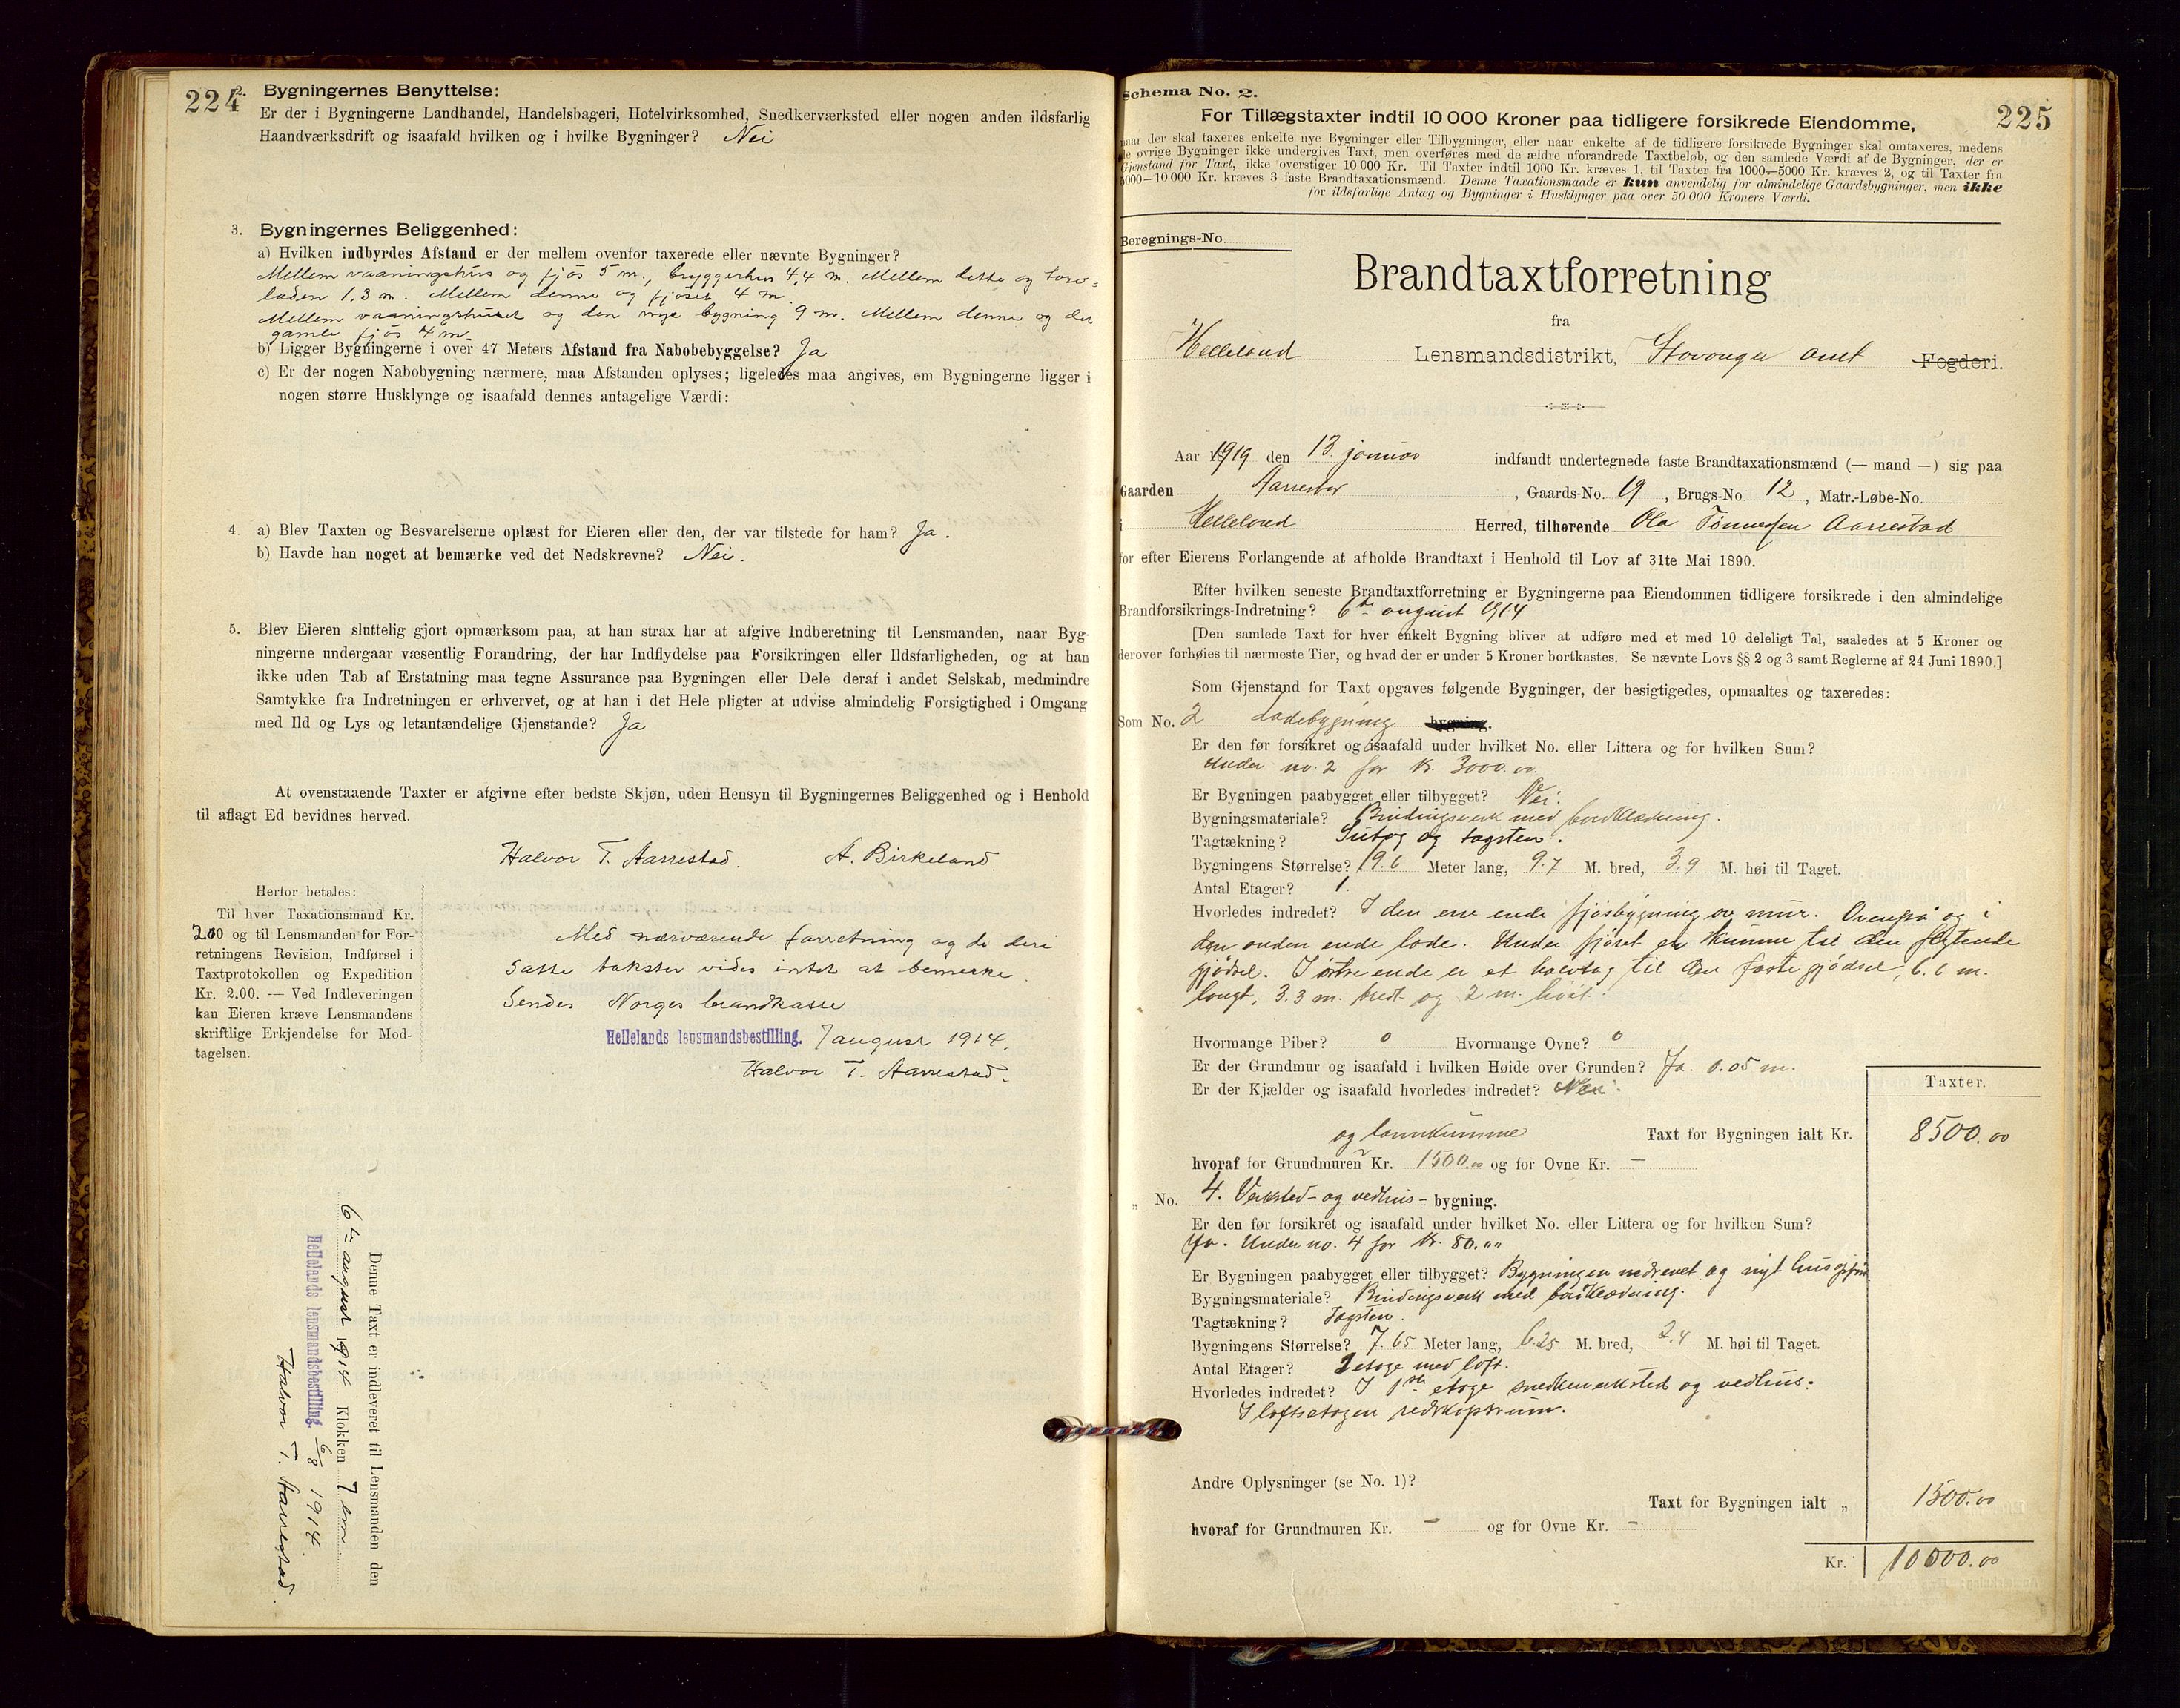 224
2. Bygningernes Benyttelse:
Er der i Bygningerne Landhandel, Handelsbageri, Hotelvirksomhed, Snedkerværksted eller nogen anden ildsfarlig
Haandværksdrift og isaafald hvilken og i hvilke Bygninger? Nei
3. Bygningernes Beliggenhed:
a) Hvilken indbyrdes Afstand er der mellem ovenfor taxerede eller nævnte Bygninger?
Mellem vaaningshus og fjös 5 m., bryggerhus 4,4 m. Mellem dette og torv-
laden 1,3 m. Mellem denne og fjöset 4 m.
Mellem vaaningshuset og den nye bygning 9 m. Mellem denne og det
gamle fjös 4 m.
b) Ligger Bygningerne i over 47 Meters Afstand fra Nabobebyggelse? Ja
c) Er der nogen Nabobygning nærmere, maa Afstanden oplyses; ligeledes maa angives, om Bygningerne ligger i
nogen større Husklynge og isaafald dennes antagelige Værdi:
4. a) Blev Taxten og Besvarelserne oplæst for Eieren eller den, der var tilstede for ham? Ja.
b) Havde han noget at bemærke ved det Nedskrevne? Nei.
5. Blev Eieren sluttelig gjort opmærksom paa, at han strax har at afgive Indberetning til Lensmanden, naar Byg-
ningerne undergaar væsentlig Forandring, der har Indflydelse paa Forsikringen eller Ildsfarligheden, og at han
ikke uden Tab af Erstatning maa tegne Assurance paa Bygningen eller Dele deraf i andet Selskab, medmindre
Samtykke fra Indretningen er erhvervet, og at han i det Hele pligter at udvise almindelig Forsigtighed i Omgang
med Ild og Lys og letantændelige Gjenstande? Ja
At ovenstaaende Taxter er afgivne efter bedste Skjøn, uden Hensyn til Bygningernes Beliggenhed og i Henhold
til aflagt Ed bevidnes herved.
Halvor T. Aarrestad. A. Birkeland.
Herfor betales:
Til hver Taxationsmand Kr.
2.00 og til Lensmanden for For-
retningens Revision, Indførsel i
Taxtprotokollen og Expedition
Kr. 2.00. — Ved Indleveringen
kan Eieren kræve Lensmandens
skriftlige Erkjendelse for Mod-
tagelsen.
Med nærværende forretning og de deri
satte takster vides intet at bemerke.
Sendes Norges brandkasse
Hellelands lensmandsbestilling. 7 august 1914.
Halvor T. Aarrestad.
Denne Taxt er indleveret til Lensmanden den
6te august 1914 Klokken 7 em.
Hellelands lensmandsbestilling. 6/8 1914.
Halvor T. Aarrestad.
225
Schema No. 2.
For Tillægstaxter indtil 10 000 Kroner paa tidligere forsikrede Eiendomme,
naar der skal taxeres enkelte nye Bygninger eller Tilbygninger, eller naar enkelte af de tidligere forsikrede Bygninger skal omtaxeres, medens
de øvrige Bygninger ikke undergives Taxt, men overføres med de ældre uforandrede Taxtbeløb, og den samlede Værdi af de Bygninger, der er
Gjenstand for Taxt, ikke overstiger 10 000 Kr. Til Taxter indtil 1000 Kr. kræves 1, til Taxter fra 1000—5000 Kr. kræves 2, og til Taxter fra
5000—10 000 Kr. kræves 3 faste Brandtaxationsmænd. Denne Taxationsmaade er kun anvendelig for almindelige Gaardsbygninger, men ikke
for ildsfarlige Anlæg og Bygninger i Husklynger paa over 50 000 Kroners Værdi.
Beregnings-No.
Brandtaxtforretning
fra
Helleland Lensmandsdistrikt, Stavanger amt Fogderi.
Aar 1919 den 13. januar indfandt undertegnede faste Brandtaxationsmænd (— mand —) sig paa
Gaarden Aarrestad, Gaards-No. 19, Brugs-No. 12, Matr.-Løbe-No.
i Helleland Herred, tilhørende Ola Tönnessen Aarrestad
for efter Eierens Forlangende at afholde Brandtaxt i Henhold til Lov af 31te Mai 1890.
Efter hvilken seneste Brandtaxtforretning er Bygningerne paa Eiendommen tidligere forsikrede i den almindelige
Brandforsikrings-Indretning? 6te august 1914
[Den samlede Taxt for hver enkelt Bygning bliver at udføre med et med 10 deleligt Tal, saaledes at 5 Kroner og
derover forhøies til nærmeste Tier, og hvad der er under 5 Kroner bortkastes. Se nævnte Lovs §§ 2 og 3 samt Reglerne af 24 Juni 1890.]
Som Gjenstand for Taxt opgaves følgende Bygninger, der besigtigedes, opmaaltes og taxeredes:
Som No. 2 Ladebygning bygning.
Er den før forsikret og isaafald under hvilket No. eller Littera og for hvilken Sum?
Under no. 2 for kr. 3000.00.
Er Bygningen paabygget eller tilbygget? Nei.
Bygningsmateriale? Bindingsverk med bordklædning.
Tagtækning? Sutag og tagsten.
Bygningens Størrelse? 19.6 Meter lang, 9.7 M. bred, 3.9 M. høi til Taget.
Antal Etager? 1.
Hvorledes indredet? I den ene ende fjösbygning av mur. Ovenpå og i
den anden ende lade. Under fjöset er kumme til den flytende
gjödsel. I östre ende er et halvtag til den faste gjödsel, 6.6 m.
langt, 3.3 m. bredt og 2 m. höit.
Hvormange Piber? 0 Hvormange Ovne? 0
Er der Grundmur og isaafald i hvilken Høide over Grunden? Ja. 0.05 m.
Er der Kjælder og isaafald hvorledes indredet? Nei.
Taxter.
og lannkumme Taxt for Bygningen ialt Kr. 8500.00
hvoraf for Grundmuren Kr. 1500.00 og for Ovne Kr. —
„ No. 4. Verksted- og vedhus- bygning.
Er den før forsikret og isaafald under hvilket No. eller Littera og for hvilken Sum?
Ja. Under no. 4 for kr. 80.""
Er Bygningen paabygget eller tilbygget? Bygningen nedrevet og nyt hus opført
Bygningsmateriale? Bindingsverk med bordklædning.
Tagtækning? Tagsten.
Bygningens Størrelse? 7.65 Meter lang, 6.25 M. bred, 2.4 M. høi til Taget.
Antal Etager? 1 etage med loft.
Hvorledes indredet? I 1ste etage snedkerverksted og vedhus.
I loftsetagen redskapsrum.
Andre Oplysninger (se No. 1)?
Taxt for Bygningen ialt „ 1500.00
hvoraf for Grundmuren Kr. — og for Ovne Kr. —
Kr. 10000.00